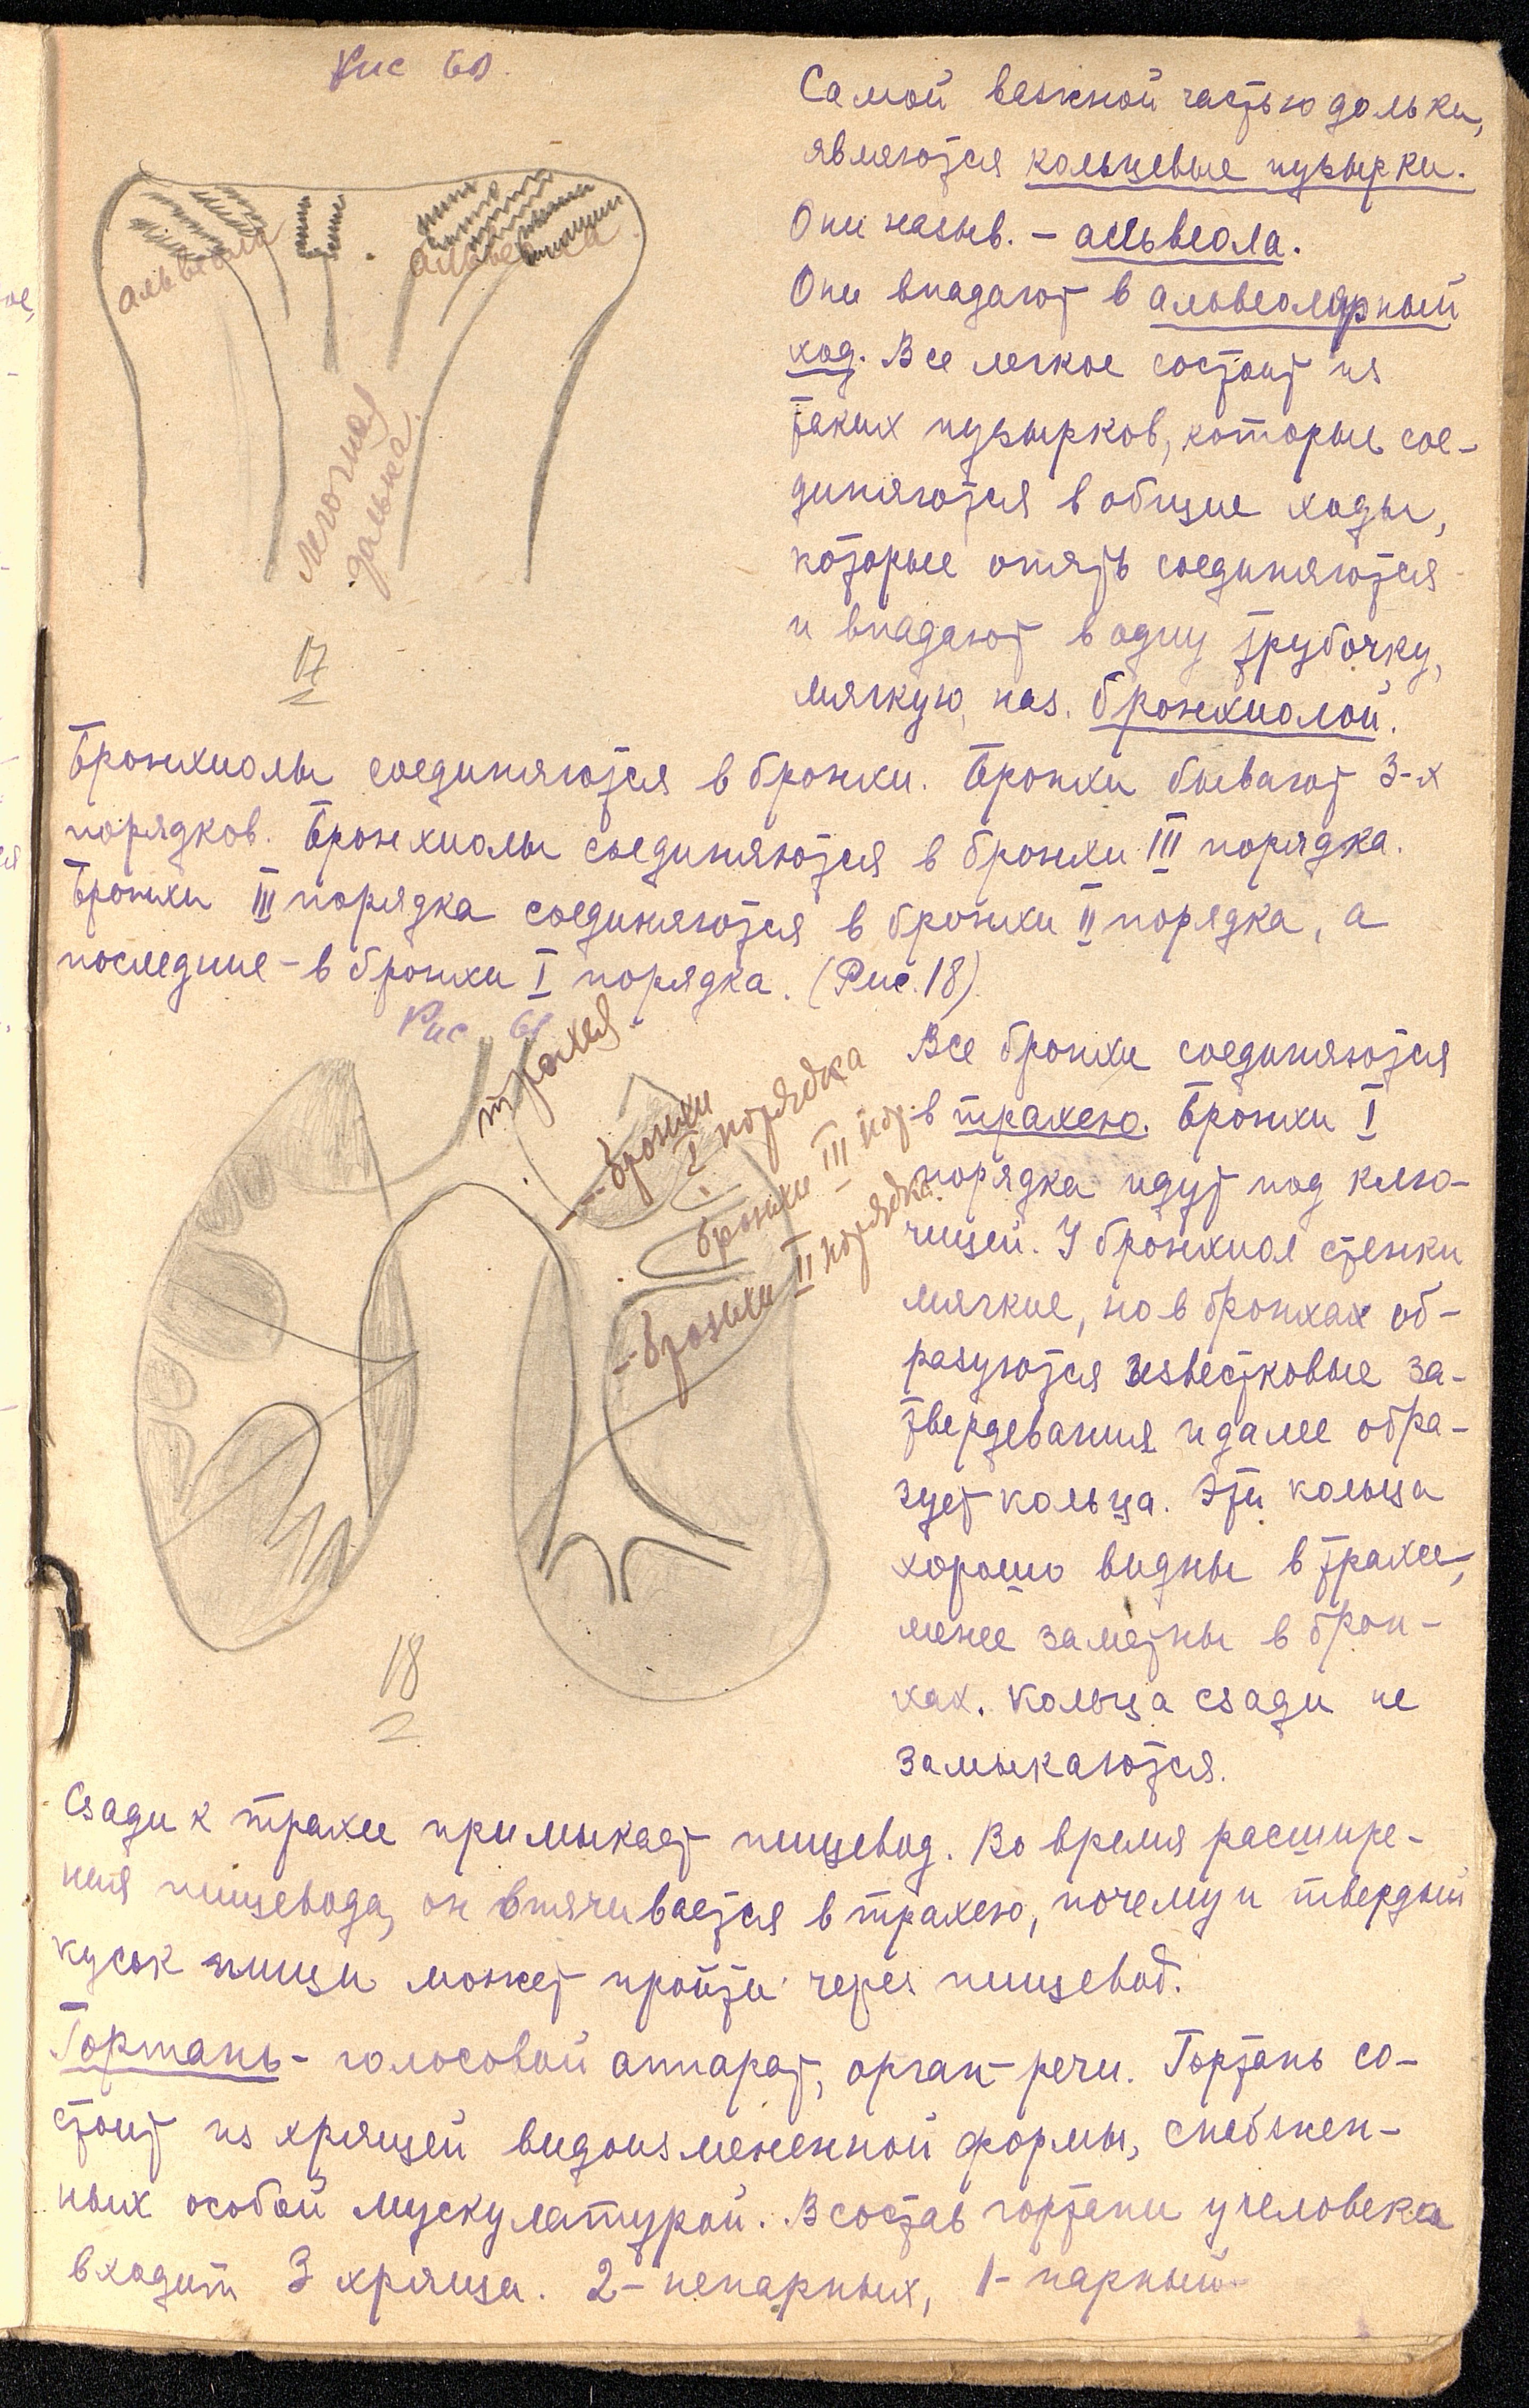 Рис 60
альвеола
альвеола
легочная
долька.
17
Самой важной частью дольки,
являются кольцевые пузырки.
Они назыв. – альвеола.
Они впадают в альвеолярный
ход. Все легкое состоит из
таких пузырков, которые сое-
диняются в общие ходы,
которые опять соединяются
и впадают в одну трубочку,
мягкую, наз. бронхиолой.
Бронхиолы соединяются в бронхи. Бронхи бывают 3-х
порядков. Бронхиолы соединяются в бронхи III порядка.
Бронхи III порядка соединяются в бронхи II порядка, а
последние – в бронхи I порядка. (Рис. 18)
Рис 61
трахея.
-- бронхи
I порядка
бронхи III пор.
-- бронхи II порядка.
18
Все бронхи соединяются
в трахею. Бронхи I
порядка идут под клю-
чицей. У бронхиол стенки
мягкие, но в бронхах об-
разуются известковые за-
твердевания и далее обра-
зует кольца. Эти кольца
хорошо видны в трахее,
менее заметны в брон-
хах. Кольца сзади не
замыкаются.
Сзади к трахее примыкает пищевод. Во время расшире-
ния пищевода, он втячивается в трахею, почему и твердый
кусок пищи может пройти через пищевод.
Гортань – голосовой аппарат, орган речи. Гортань со-
стоит из хрящей видоизмененной формы, снабжен-
ных особой мускулатурой. В состав гортани у человека
входит 3 хряща. 2 – непарных, 1 – парный